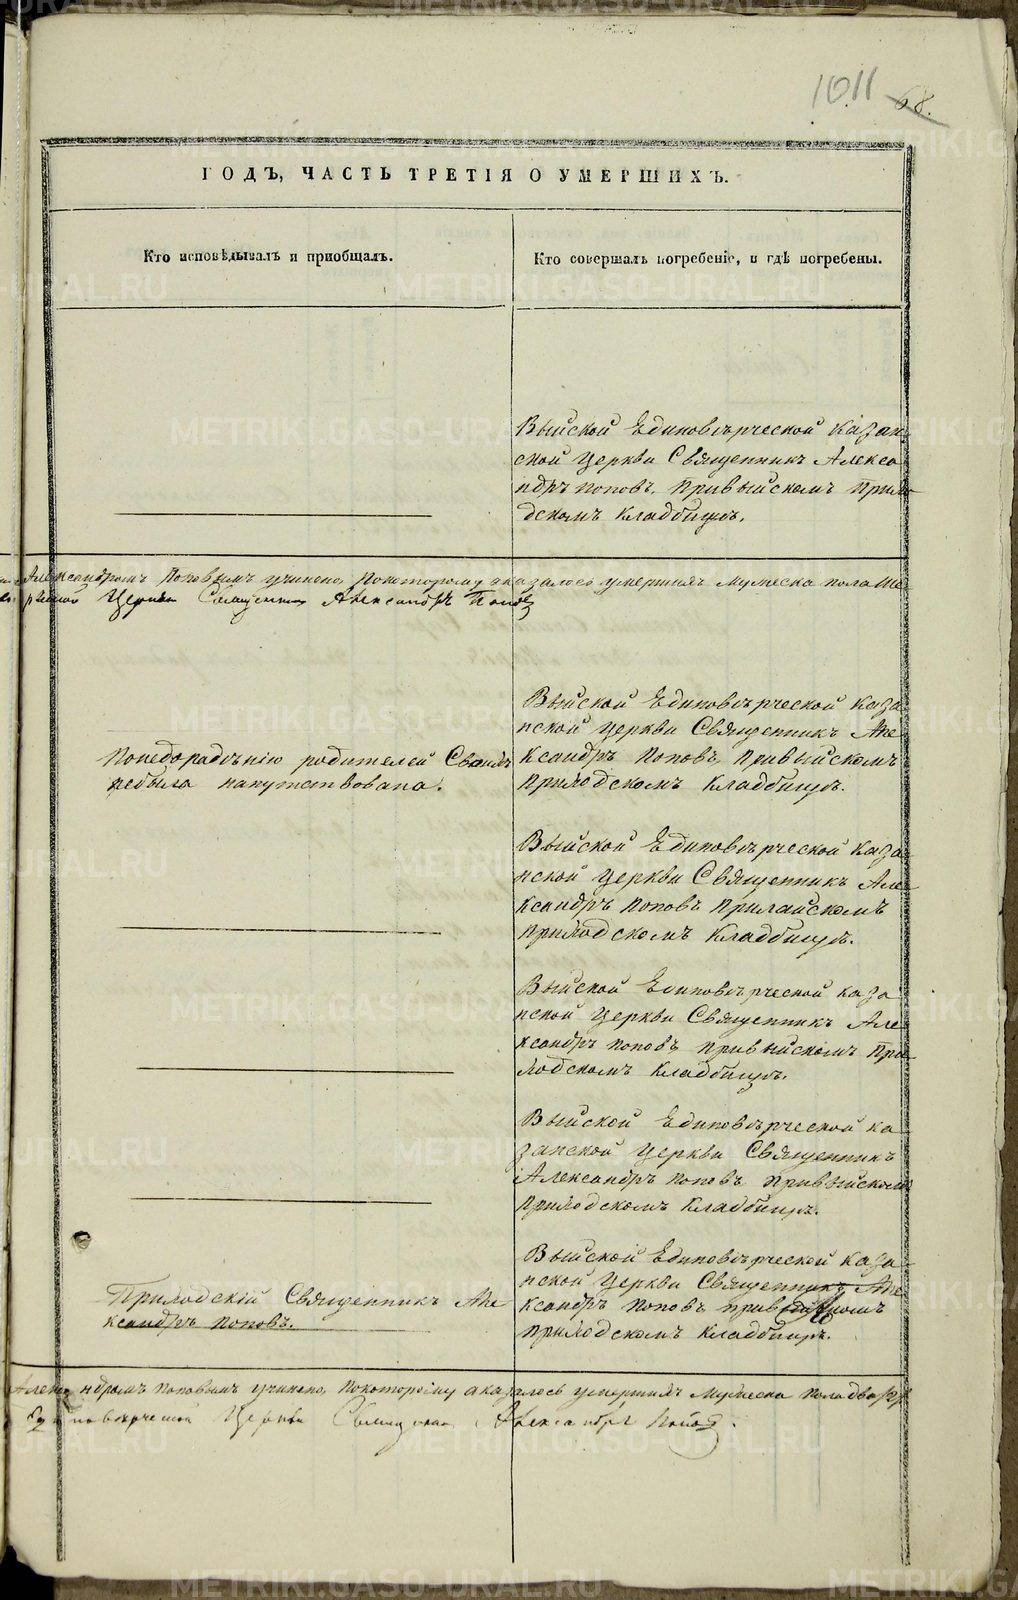 1011 68.
ГОДЪ, ЧАСТЬ ТРЕТІЯ О УМЕРШИХЪ.
Кто исповѣдывалъ и пріобщалъ.
Кто совершалъ погребеніе, и гдѣ погребены.
Выйской Единовѣрческой Казан
ской Церкви Священникъ Алекса
ндръ Поповъ, Привыйскомъ Прихо
дскомъ Кладбищѣ.
Александромъ Поповымъ учинено, Покоторому оказалось умершихъ Мужеска пола
Церкви Священникъ Александръ Поповъ
Понедорадѣнію родителей
небыла напутствована.
Выйской Единовѣрческой Каза
нской Церкви Священникъ Але
ксандръ Поповъ, Привыйскомъ
Приходскомъ Кладбищѣ.
Выйской Единовѣрческой Каза
нской Церкви Священникъ Але
ксандръ Поповъ Прилайскомъ
Приходскомъ Кладбищѣ.
Выйской Единовѣрческой Каза
нской Церкви Священникъ Але
ксандръ Поповъ Привыйскомъ При
ходскомъ Кладбищѣ.
Выйской Единовѣрческой Ка
занской Церкви Священникъ
Александръ Поповъ Привыйскомъ
Приходскомъ Кладбищѣ.
Приходскій Священникъ Але
ксандръ Поповъ.
Выйской Единовѣрческой Каза
нской Церкви Священникъ Але
ксандръ Поповъ
Приходскомъ Кладбищѣ.
Александромъ Поповымъ учинено, Покоторому оказалось умершихъ Мужеска пола два
Единовѣрческой Церкви Священникъ Александръ Поповъ.
METRIKI.GASO-URAL.RU